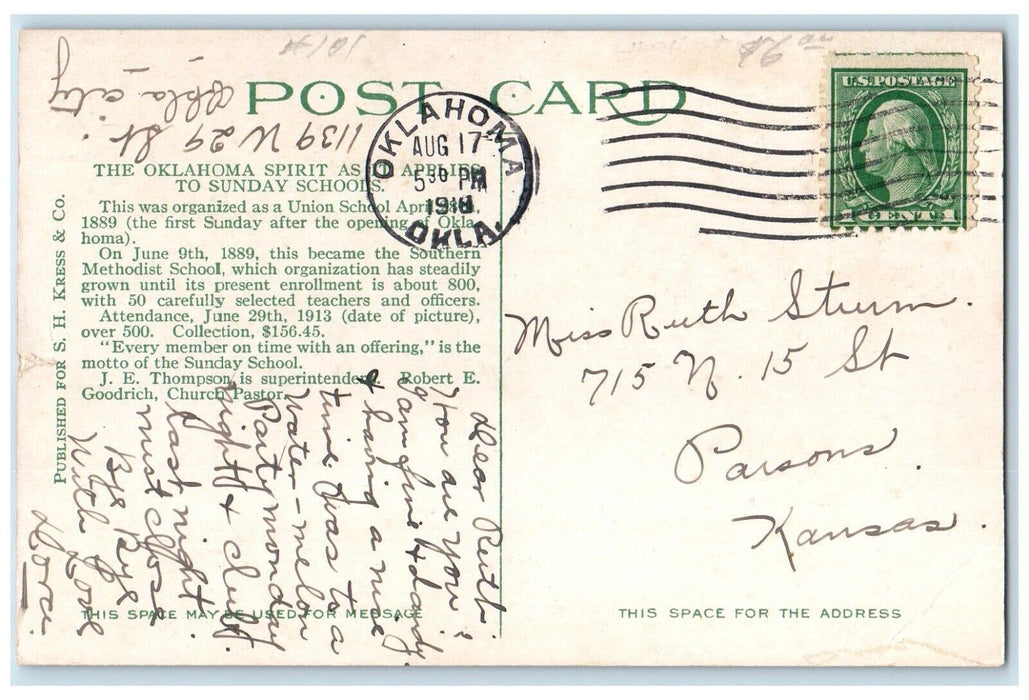 POST CARD
OKLAHOMA
AUG 17
5 30 PM
OKLA.
U.S. POSTAGE
1 CENT 1
Okla - city
1139 W 29 St.
THE OKLAHOMA SPIRIT AS IT APPLIES
TO SUNDAY SCHOOLS.
This was organized as a Union School April
1889 (the first Sunday after the opening of Okla-
homa).
On June 9th, 1889, this became the Southern
Methodist School, which organization has steadily
grown until its present enrollment is about 800,
with 50 carefully selected teachers and officers.
Attendance, June 29th, 1913 (date of picture),
over 500. Collection, $156.45.
"Every member on time with an offering," is the
motto of the Sunday School.
J. E. Thompson is superintendent. Robert E.
Goodrich, Church Pastor.
PUBLISHED FOR S. H. KRESS & CO.
Dear Ruth:
How are you?
I am fine & dandy
& having a nice
time. Was to a
Water-melon
Party monday
night & club
last night.
must close
Bye Bye
With Love
THIS SPACE MAY BE USED FOR MESSAGE
Miss Ruth Sturm.
715 N. 15 St
Parsons.
Kansas.
THIS SPACE FOR THE ADDRESS